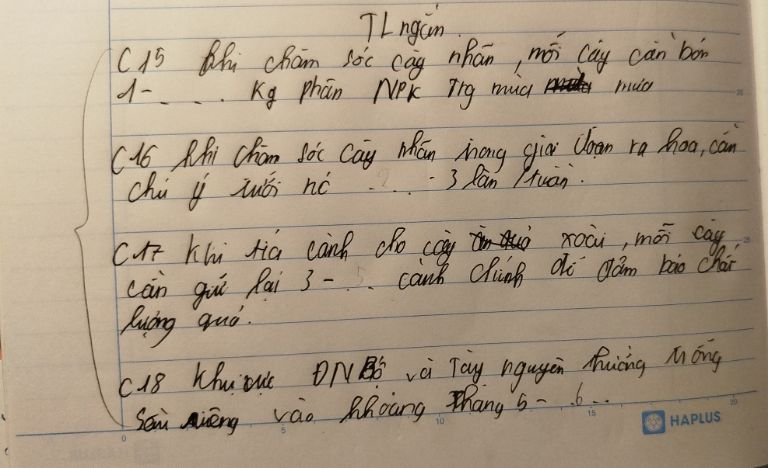 TL ngắn
C15 Khi chăm sóc cây nhãn, mỗi cây cần bón
1- ..... Kg phân NPK Trg mùa mưa
C16 Khi chăm sóc cây nhãn trong giai đoạn ra hoa, cần
chú ý tưới nc 2 - 3 lần /tuần.
C17 Khi tỉa cành cho cây xoài, mỗi cây
cần giữ lại 3 - 5 cành chính để đảm bảo chất
lượng quả.
C18 Khu vực ĐNBộ và Tây nguyên thường trồng
Sầu riêng vào khoảng Tháng 5 - 6
HAPLUS
0 5 10 15 20